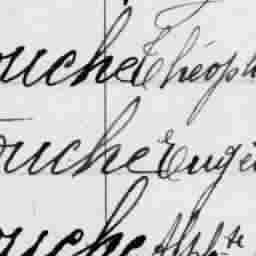 ouche Théoph
ouche Eugè
ouche Alph.te